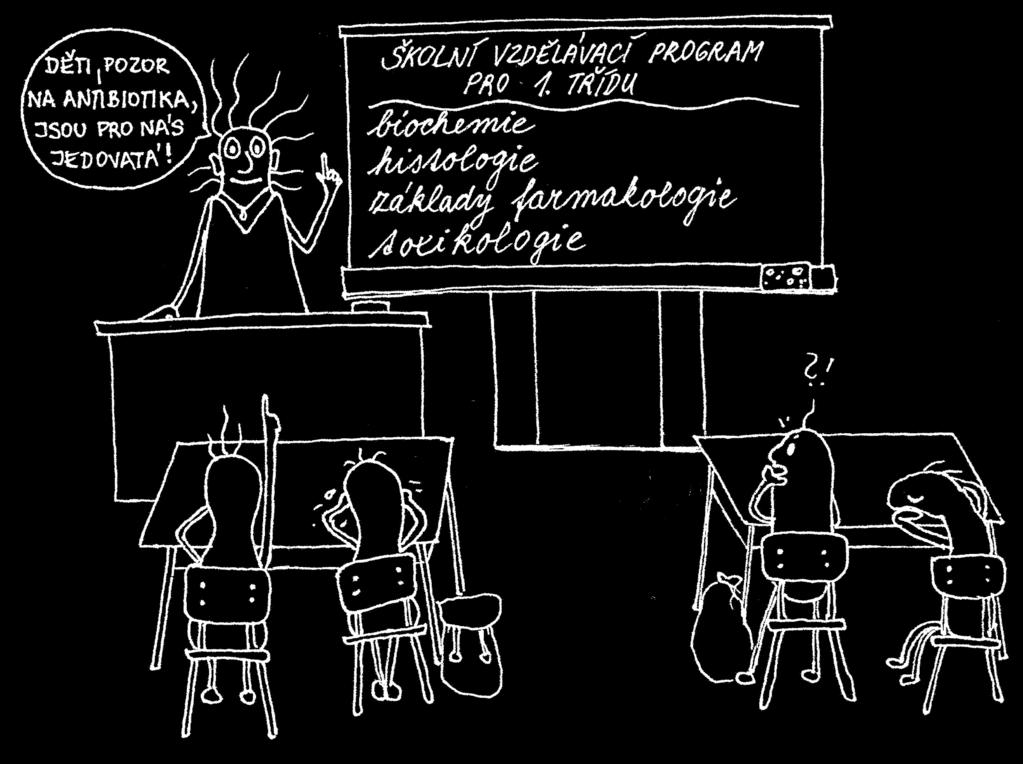 DĚTI, POZOR
NA ANTIBIOTIKA,
JSOU PRO NÁS
JEDOVATÁ!
ŠKOLNÍ VZDĚLÁVACÍ PROGRAM
PRO 1. TŘÍDU
biochemie
histologie
základy farmakologie
toxikologie
?!